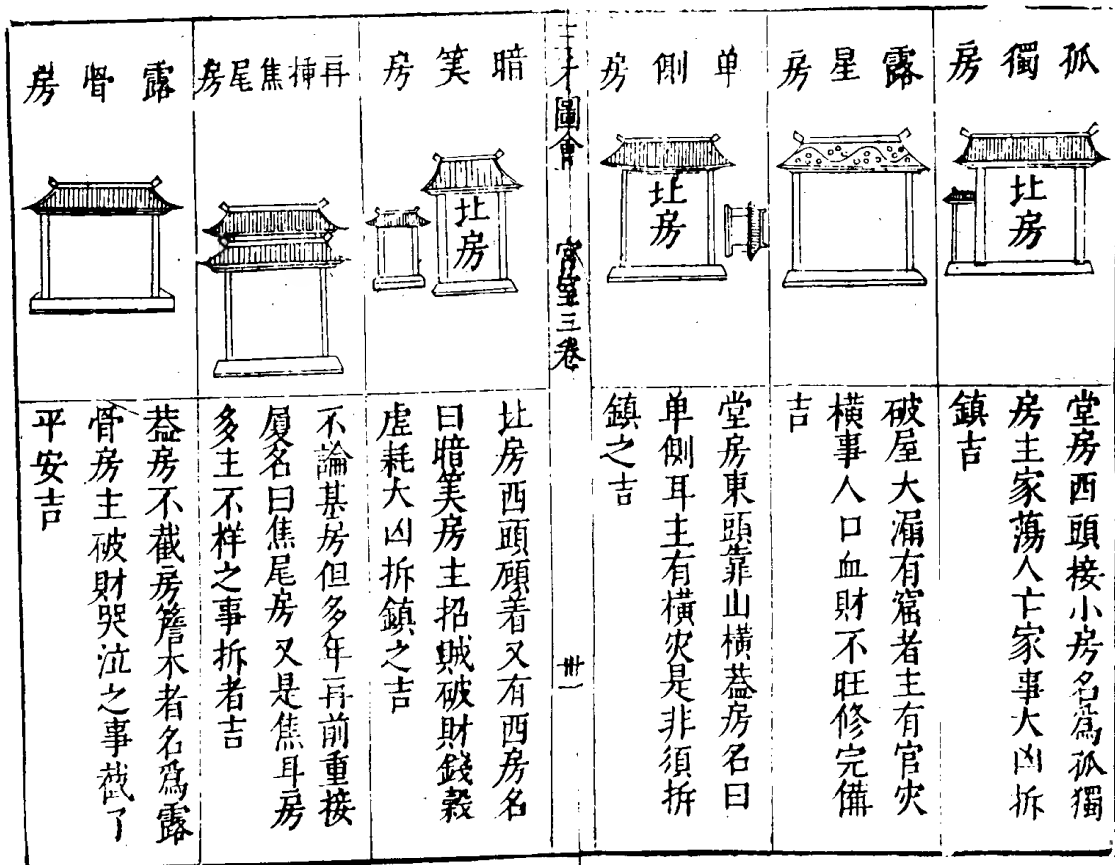 孤獨房
北房
堂房西頭接小房名爲孤獨
房主家蕩人亡家事大凶拆
鎮吉
露星房
破屋大漏有窟者主有官灾
橫事人口血財不旺修完備
吉
单側房
北房
堂房東頭靠山橫葢房名曰
单側耳主有橫灾是非須拆
鎮之吉
三才圖會
宮室三卷
卅一
暗笑房
北房
北房西頭順着又有西房名
曰暗笑房主招賊破財錢穀
虛耗大凶拆鎮之吉
再揷焦尾房
不論某房但多年再前重接
厦名曰焦尾房又是焦耳房
多主不样之事拆者吉
露骨房
葢房不截房簷木者名爲露
骨房主破財哭泣之事截了
平安吉